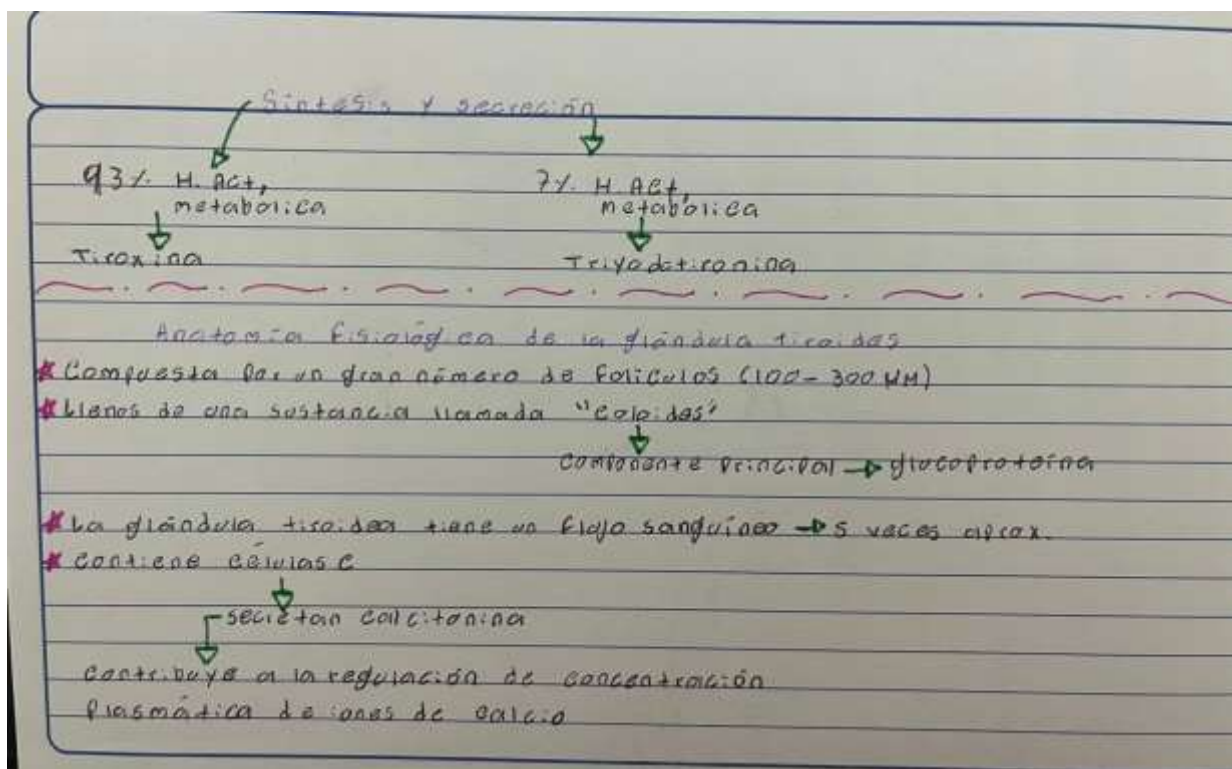 Síntesis y secreción
93% H. Act, 7% H. Act,
metabólica metabólica
Tiroxina Triyodotironina
Anatomía fisiológica de la glándula tiroides
* Compuesta por un gran número de folículos (100-300 µM)
* Llenos de una sustancia llamada "coloides"
componente principal → glucoproteína
* La glándula tiroidea tiene un flujo sanguíneo → 5 veces aprox.
* Contiene células C
secretan calcitonina
contribuye a la regulación de concentración
plasmática de iones de calcio